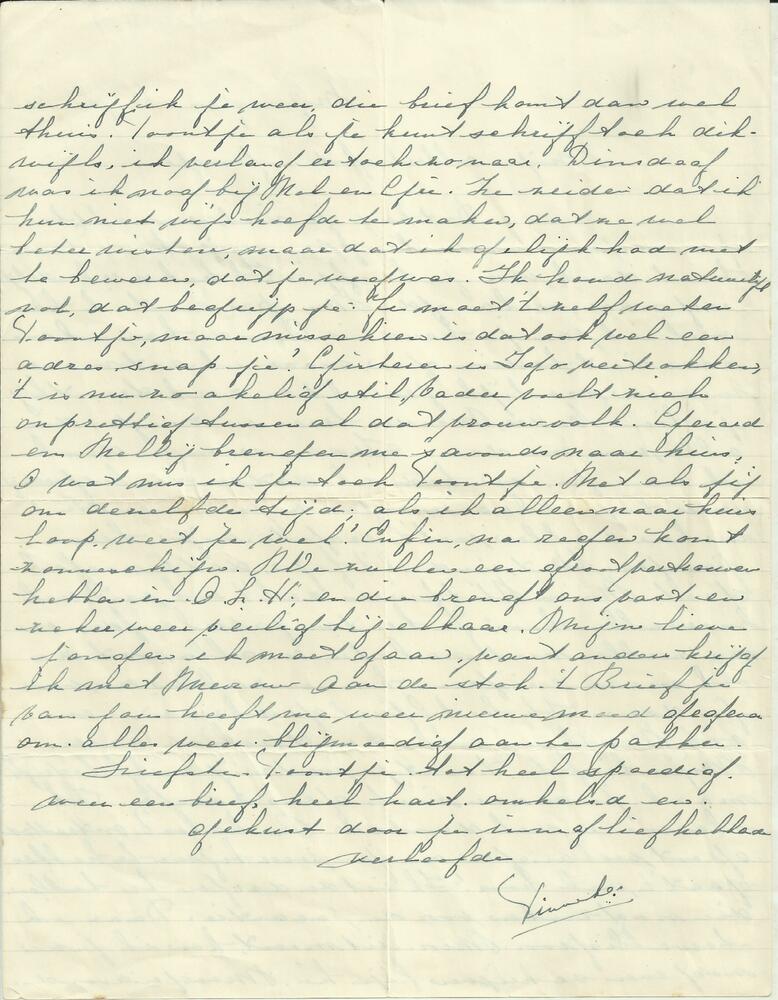 schrijf ik je weer, die brief komt dan wel
thuis. Toontje als je kunt schrijf toch dik-
wijls, ik verlang er toch zo naar. Dinsdag
was ik nog bij Mol en Ejie. Ze zeiden dat ik
hun niet wijs hoefde te maken, dat ze wel
beter wisten, maar dat ik gelijk had met
te beweren, dat je weg was. Ik houd natuurlijk
vol, dat begrijp je. Je moet 't zelf weten
Toontje, maar misschien is dat ook wel een
adres, snap je! Gisteren is Jefo vertrokken,
't is nu zo akelig stil, Vader voelt zich
onprettig tussen al dat vrouwvolk. Gerard
en Nellij brengen me 's avonds naar huis,
O wat mis ik je toch Toontje. Net als jij
om dezelfde tijd, als ik alleen naar huis
loop, weet je wel! Enfin, na regen komt
zonneschijn. We zullen een groot vertrouwen
hebben in O.L.H. en die brengt ons vast en
zeker weer veilig bij elkaar. Mijn lieve
jongen ik moet gaan, want anders krijg
ik met Mevrouw aan de stok. 't Briefje
van jou heeft me weer nieuwe moed gegeven
om alles weer blijmoedig aan te pakken.
Liefste Toontje, tot heel spoedig
weer een brief, heel hart. omhelsd en
gekust door je innig liefhebbende
verloofde